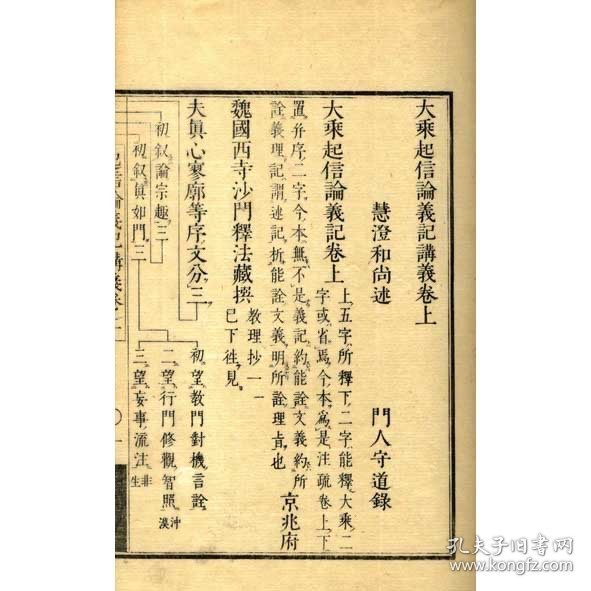 大乘起信論義記講義卷上
慧澄和尚述 門人守道錄
大乘起信論義記卷上
上五字所釋下二字能釋大乘二
字或省焉今本爲是注疏卷上下
置弁序二字今本無不是義記約能詮文義約所
詮義理記謂述記析能詮文義明所詮理旨也
京兆府
魏國西寺沙門釋法藏撰
教理抄一一
巳下往見
夫眞心寥廓等序文分三
初叙論宗趣三
初叙眞如門三
初望教門對機言詮
二望行門修觀智照
沖漠
三望妄事流注
非生
起信論義記講義卷上
孔夫子旧书网
www.kongfz.com